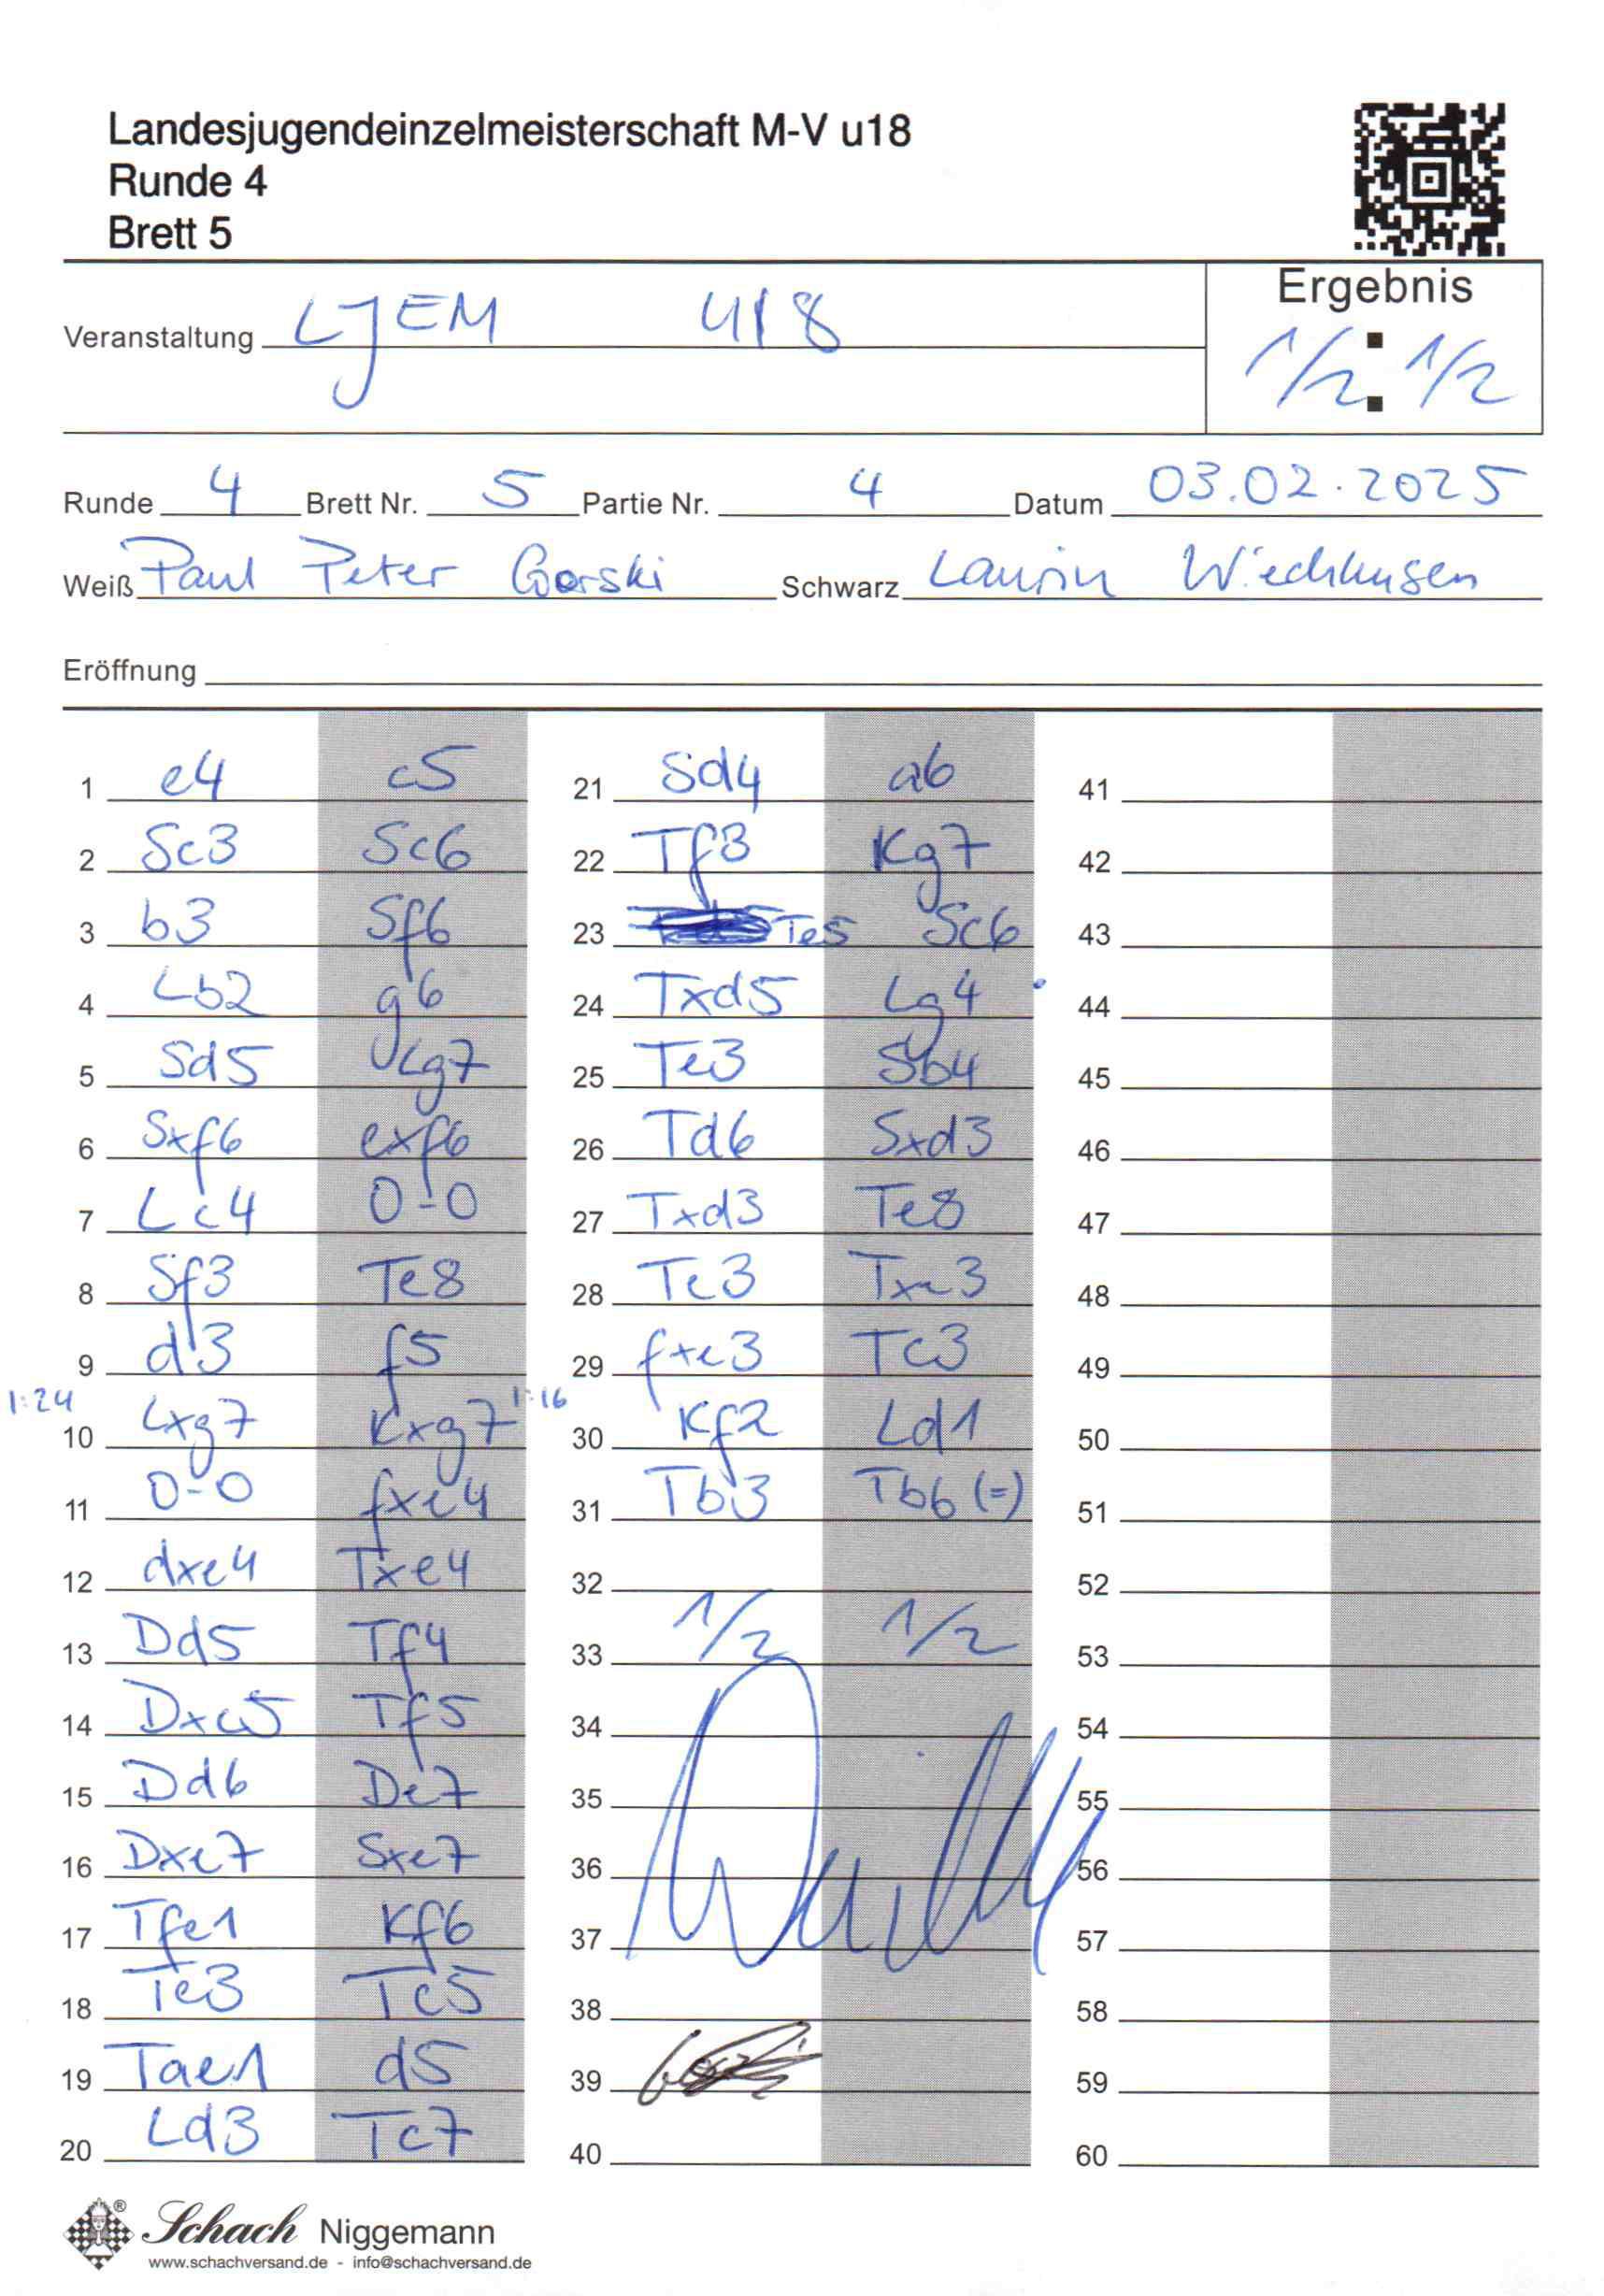 Landesjugendeinzelmeisterschaft M-V u18
Runde 4
Brett 5
Ergebnis
Veranstaltung LJEM U18
1/2 : 1/2
Runde 4 Brett Nr. 5 Partie Nr. 4 Datum 03.02.2025
Weiß Paul Peter Gorski Schwarz Laurin Wiechhusen
Eröffnung
1 e4 c5
2 Sc3 Sc6
3 b3 Sf6
4 Lb2 g6
5 Sd5 Lg7
6 Sxf6 exf6
7 Lc4 0-0
8 Sf3 Te8
9 d3 f5
1:24 1:16
10 Lxg7 Kxg7
11 0-0 fxe4
12 dxe4 Txe4
13 Dd5 Tf4
14 Dxc5 Tf5
15 Dd6 De7
16 Dxe7 Sxe7
17 Tfe1 Kf6
18 Te3 Tc5
19 Tae1 d5
20 Ld3 Tc7
21 Sd4 a6
22 Tf3 Kg7
23 Te5 Sc6
24 Txd5 Lg4
25 Te3 Sb4
26 Td6 Sxd3
27 Txd3 Te8
28 Te3 Txe3
29 fxe3 Tc3
30 Kf2 Ld1
31 Tb3 Tb6 (=)
32
33 1/2 1/2
34
35
36
37
38
39
40
41
42
43
44
45
46
47
48
49
50
51
52
53
54
55
56
57
58
59
60
Schach Niggemann
www.schachversand.de - info@schachversand.de